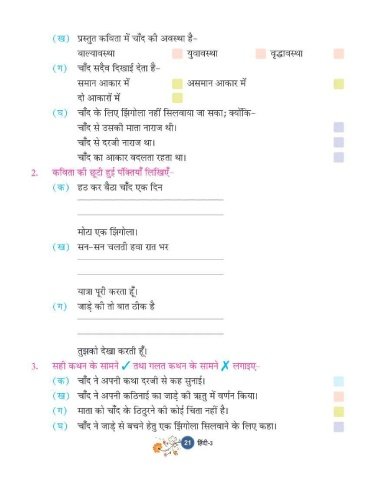 (ख) प्रस्तुत कविता में चाँद की अवस्था है–
बाल्यावस्था युवावस्था वृद्धावस्था
(ग) चाँद सदैव दिखाई देता है–
समान आकार में असमान आकार में
दो आकारों में
(घ) चाँद के लिए झिंगोला नहीं सिलवाया जा सका; क्योंकि–
चाँद से उसकी माता नाराज थी।
चाँद से दरजी नाराज था।
चाँद का आकार बदलता रहता था।
2. कविता की छूटी हुई पंक्तियाँ लिखिएँ–
(क) हठ कर बैठा चाँद एक दिन
मोटा एक झिंगोला।
(ख) सन-सन चलती हवा रात भर
यात्रा पूरी करता हूँ।
(ग) जाड़े की तो बात ठीक है
तुझको देखा करती हूँ।
3. सही कथन के सामने ✓ तथा गलत कथन के सामने ✗ लगाइए–
(क) चाँद ने अपनी कथा दरजी से कह सुनाई।
(ख) चाँद ने अपनी कठिनाई का जाड़े की ऋतु में वर्णन किया।
(ग) माता को चाँद के ठिठुरने की कोई चिंता नहीं है।
(घ) चाँद ने जाड़े से बचने हेतु एक झिंगोला सिलवाने के लिए कहा।
21 हिंदी-3